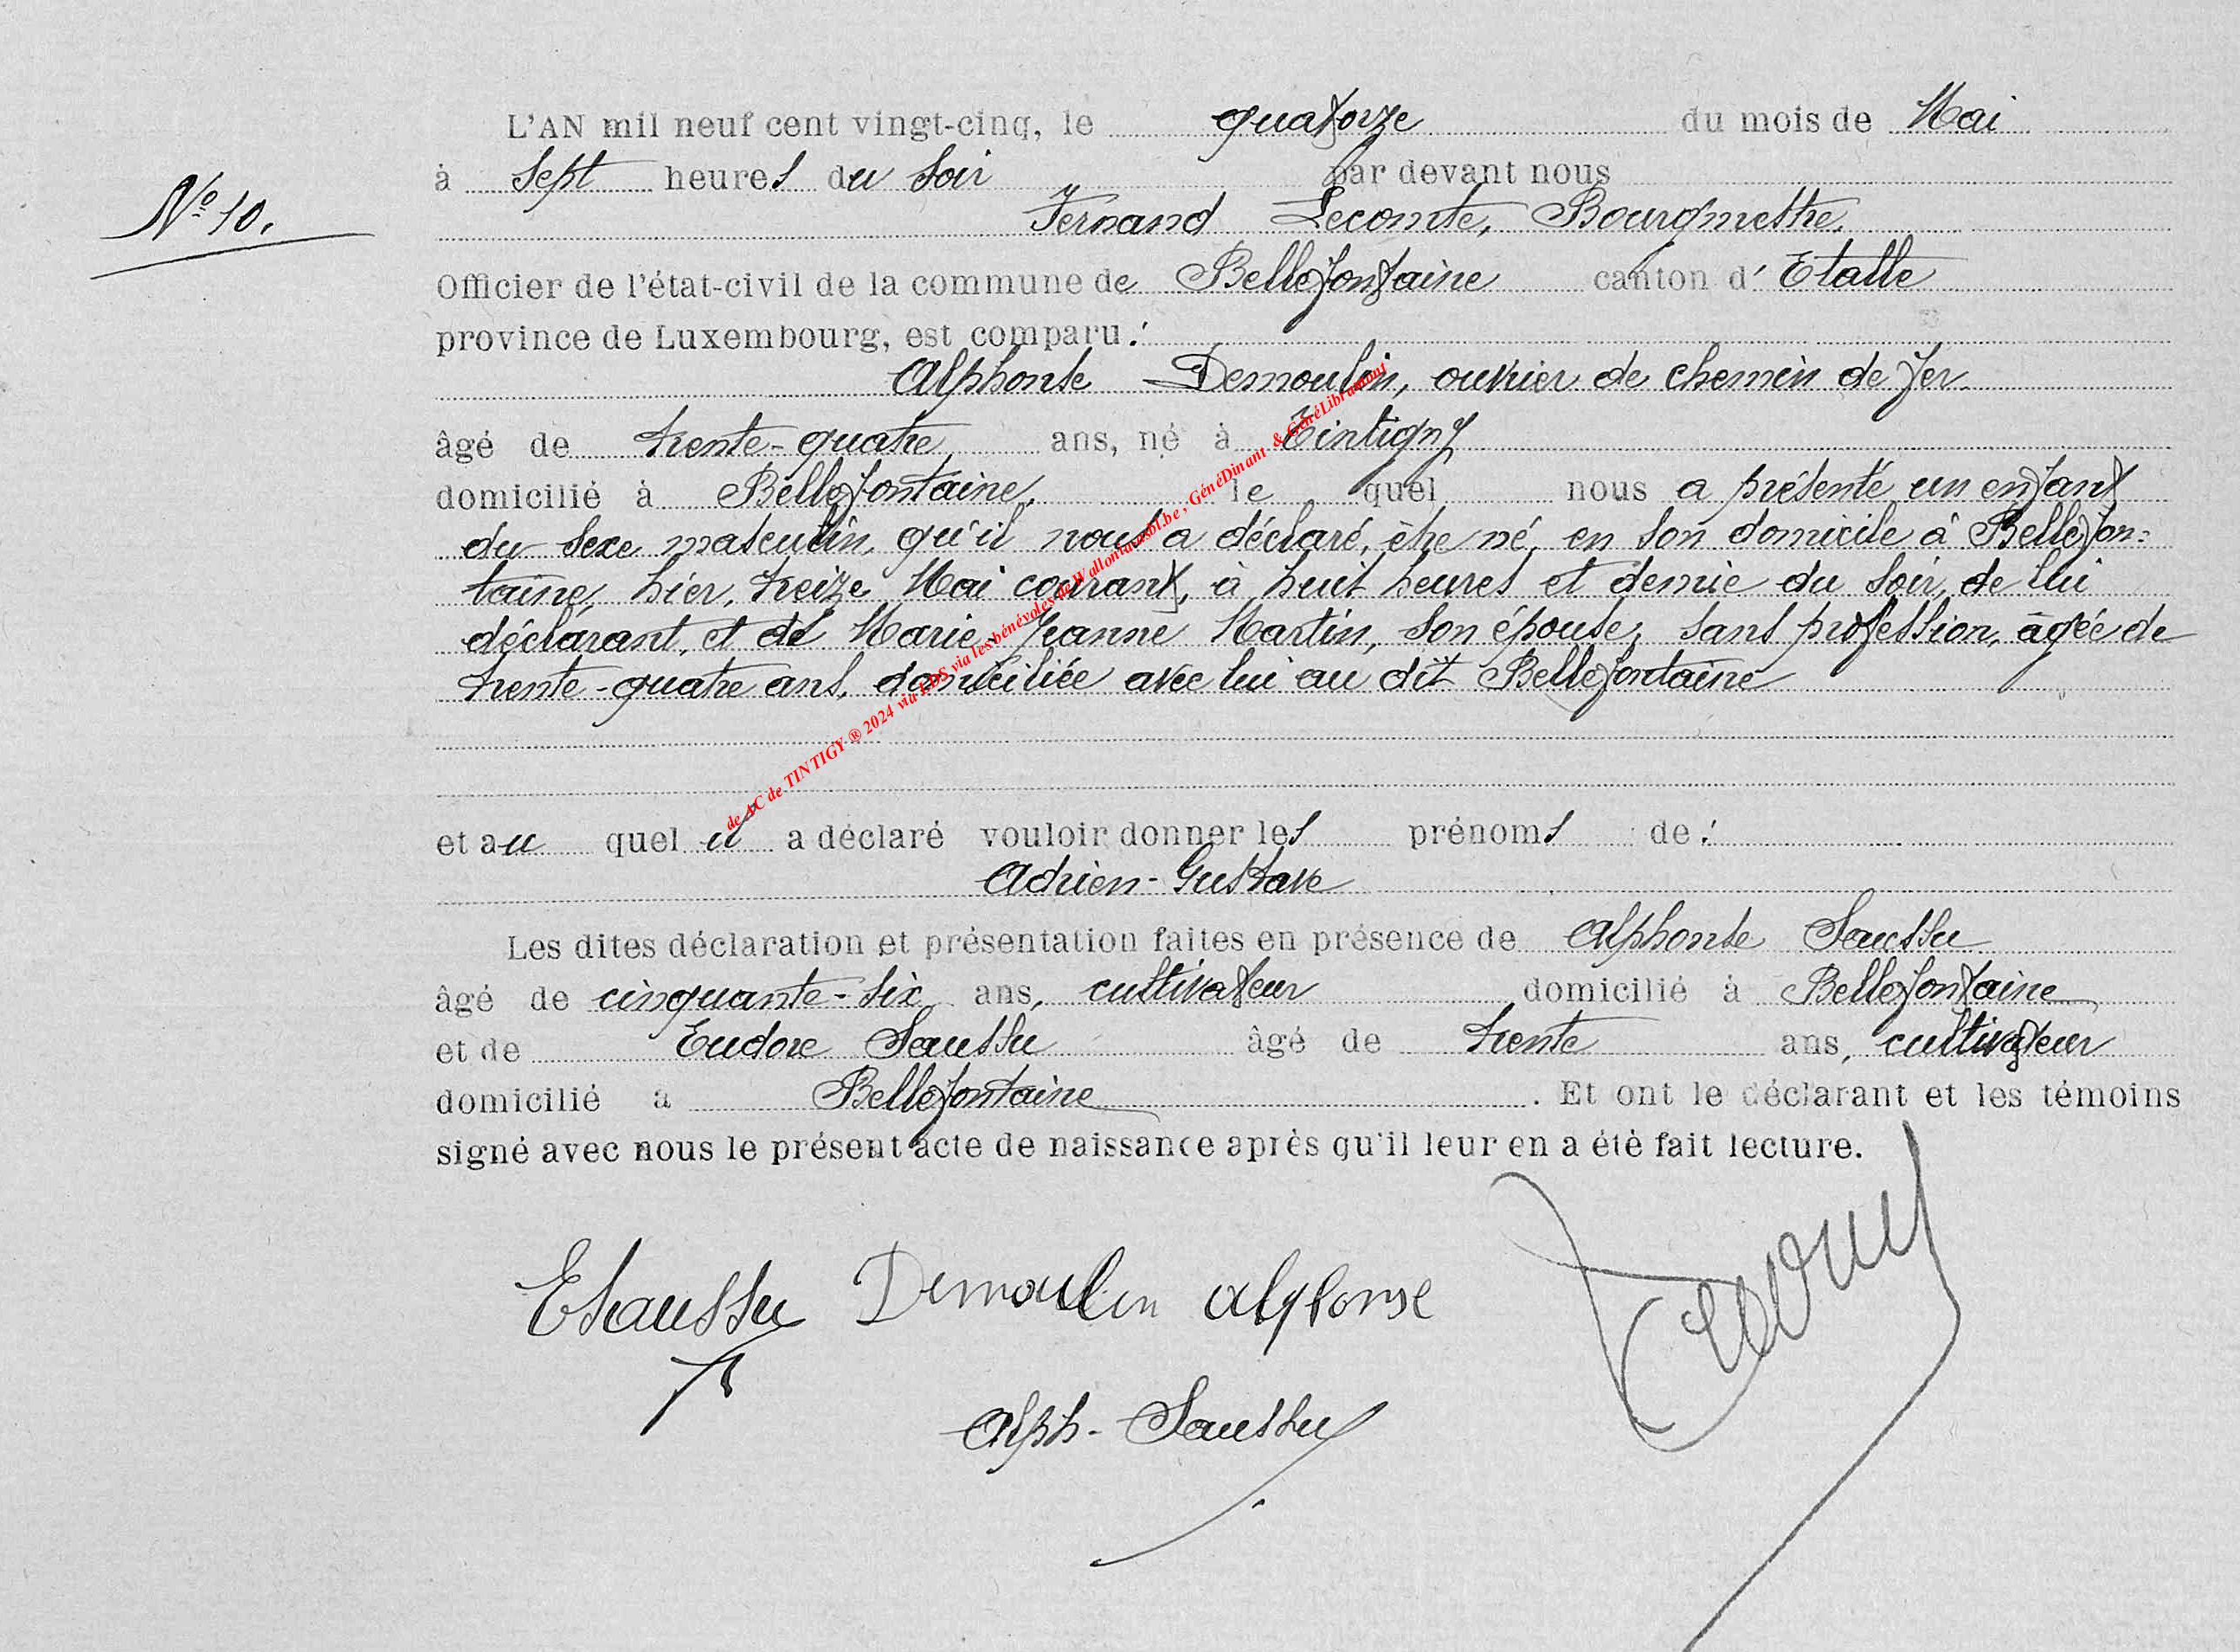 L'AN mil neuf cent vingt-cinq, le quatorze du mois de Mai
à sept heures du soir par devant nous
N° 10.
Fernand Lecomte, Bourgmestre,
Officier de l'état-civil de la commune de Bellefontaine canton d' Etalle
province de Luxembourg, est comparu :
Alphonse Demoulin, ouvrier de chemin de fer
âgé de trente-quatre ans, né à Tintigny
domicilié à Bellefontaine, le quel nous a présenté un enfant
du sexe masculin, qu'il nous a déclaré, être né, en son domicile à Bellefon=
taine, hier, treize Mai courant, à huit heures et demie du soir, de lui
déclarant, et de Marie-Jeanne Martin, son épouse, sans profession, âgée de
trente-quatre ans, domiciliée avec lui au dit Bellefontaine
de AC de TINTIGY ® 2024 via LDS via les bénévoles de Wallonia asbl.be , GénéDinant & GénéLibramont
et au quel il a déclaré vouloir donner les prénoms de :
Adrien-Gustave
Les dites déclaration et présentation faites en présence de Alphonse Saussu
âgé de cinquante-six ans, cultivateur domicilié à Bellefontaine
et de Eudore Saussu âgé de trente ans, cultivateur
domicilié à Bellefontaine . Et ont le déclarant et les témoins
signé avec nous le présent acte de naissance après qu'il leur en a été fait lecture.
ESaussu Demoulin alphonse
Alph- Saussu